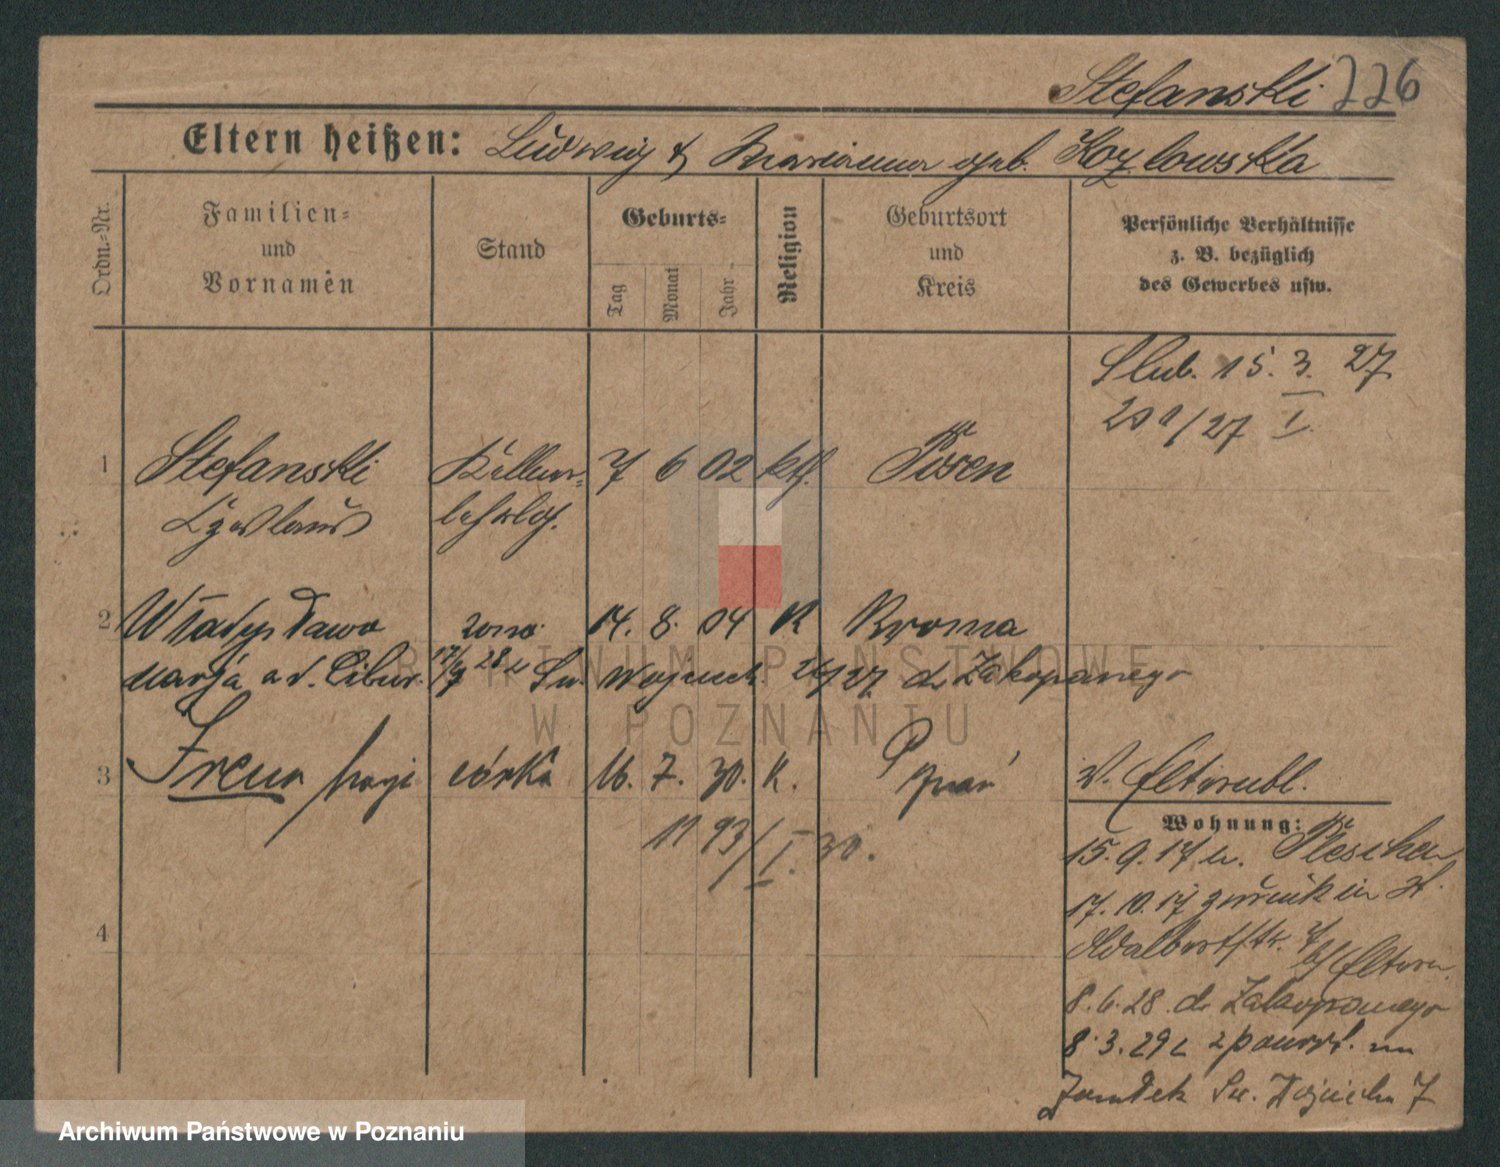 Stefanski 226
Eltern heißen: Ludwig & Marianna geb. Kozlowska
Ordn.=Nr.
Familien=
und
Vornamen
Stand
Geburts=
Tag
Monat
Jahr
Religion
Geburtsort
und
Kreis
Persönliche Verhältnisse
z. B. bezüglich
des Gewerbes usw.
Slub. 15. 3. 27
I.
1 Stefanski Kellner= 7 6 02 kth. Posen
Czeslaus lehrlg.
2 Władysława żona 14. 8. 04 K
Marja Sw. Wojciech. 27 do Zakopanego
3 Irena córka 16. 7. 30. K. Pznań
1193/I. 30.
W. Elternbl.
Wohnung:
15. 9. 17 n. Pleschen
17. 10. 17 zurück in St.
Adalbertstr. 7 bei Eltern.
8. 6. 28. do Zakopanego
8. 3. 29 z powrt. na
Sw. Wojciecha 7
4
ARCHIWUM PAŃSTWOWE
W POZNANIU
Archiwum Państwowe w Poznaniu